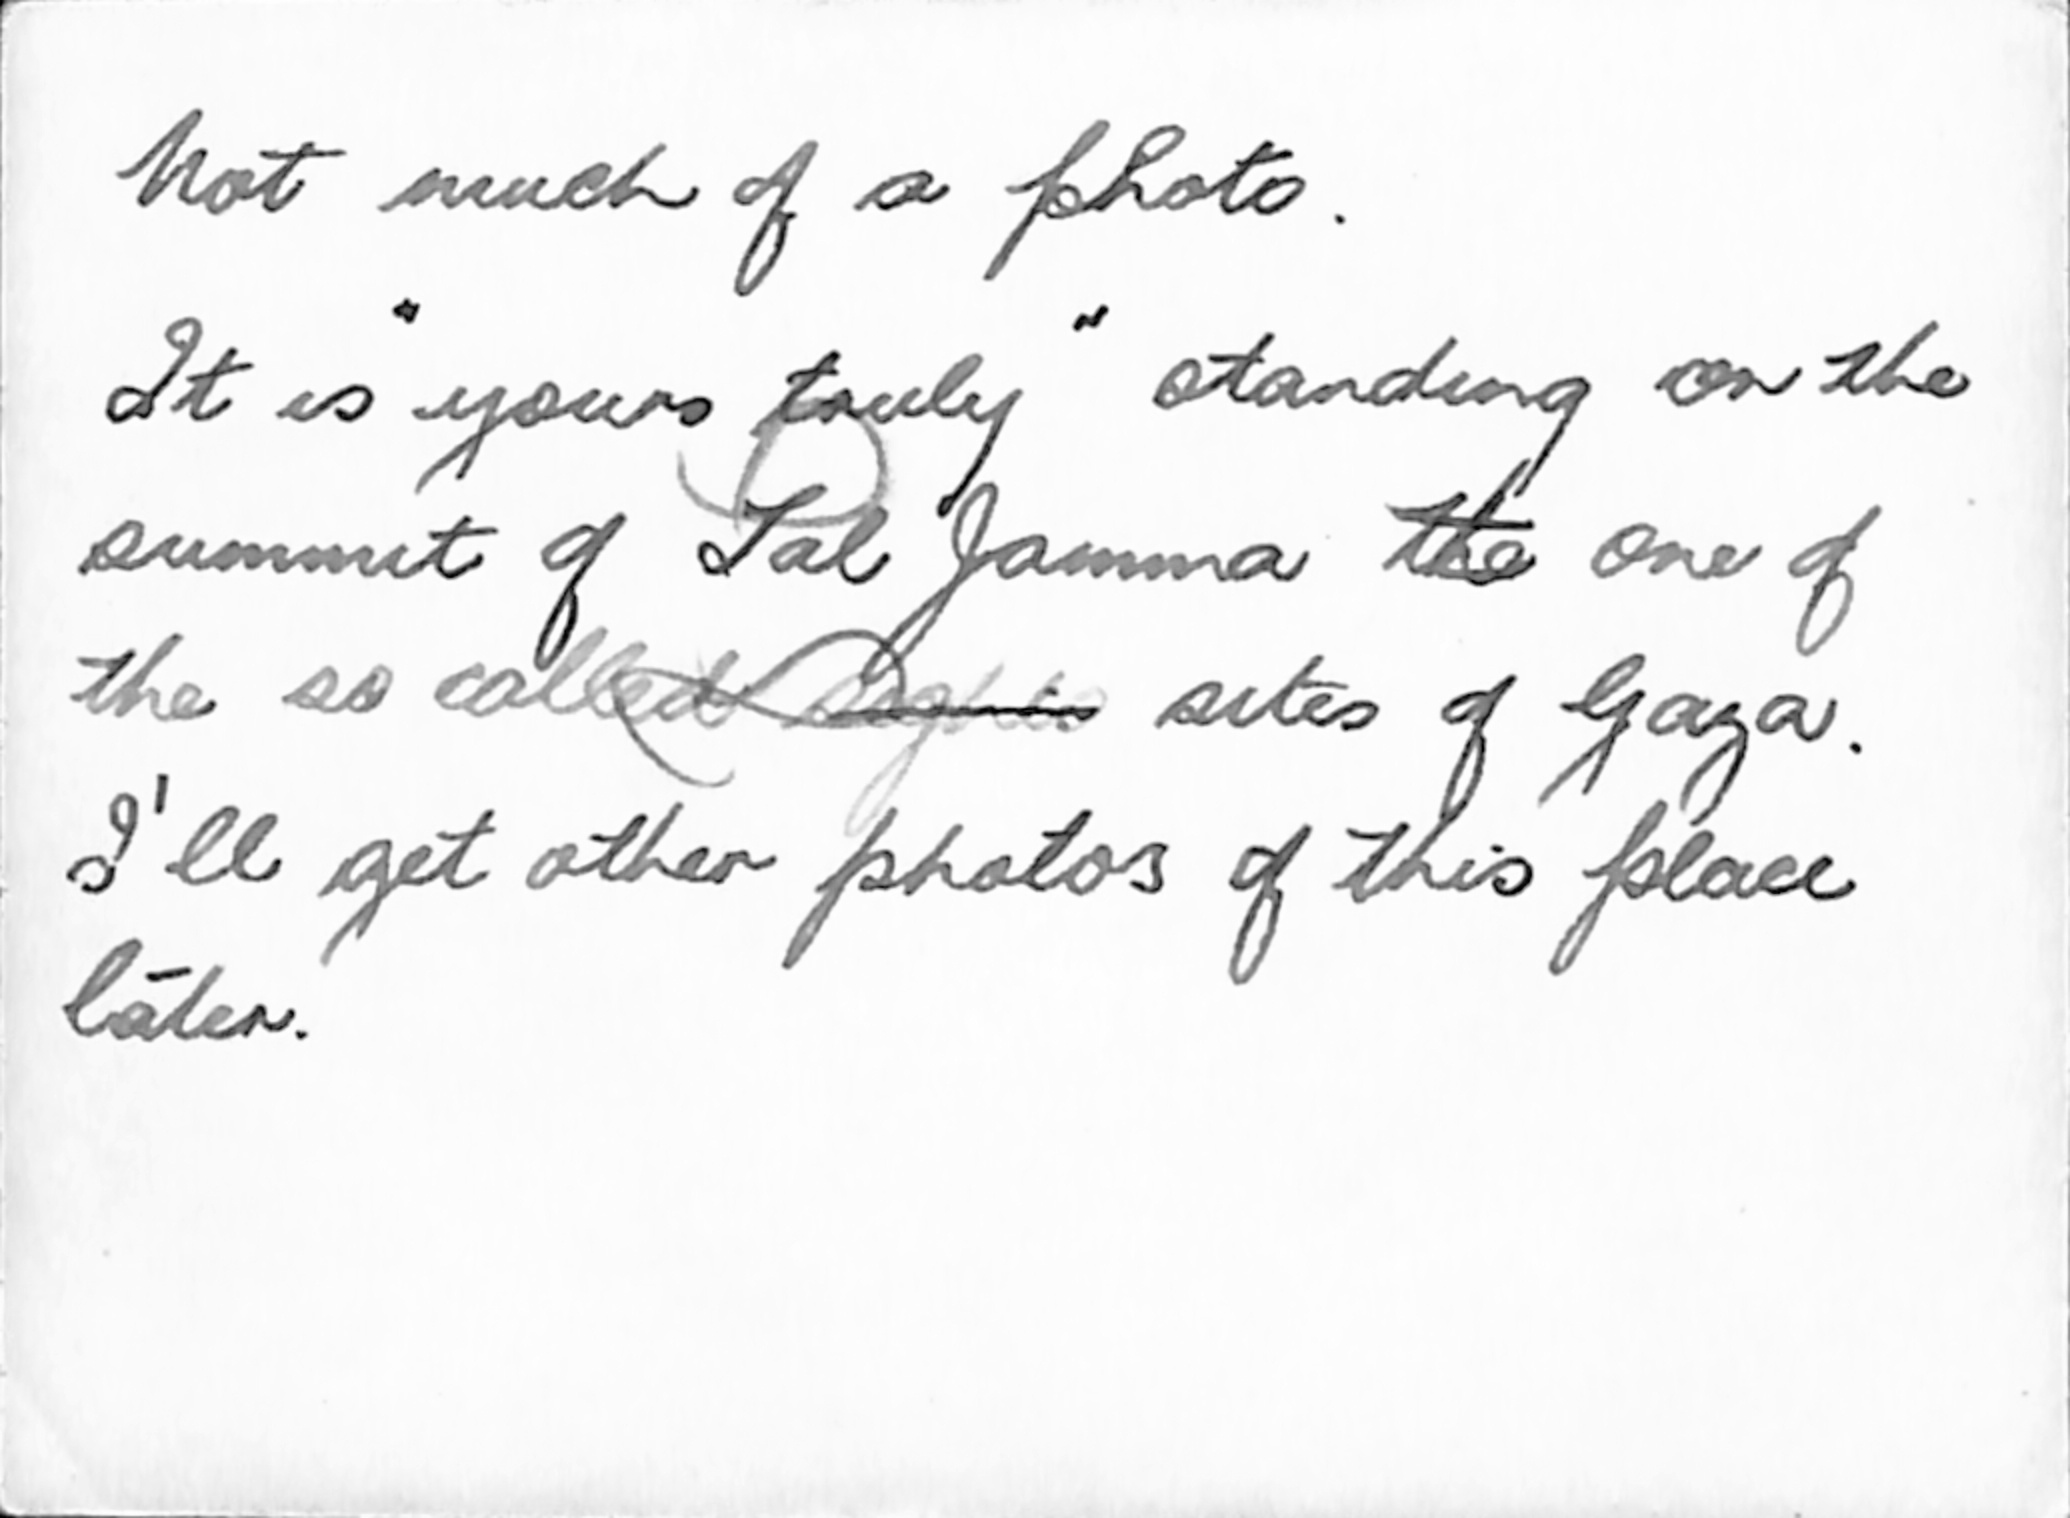 Not much of a photo.
It is "yours truly" standing on the
summit of Tal Jamma the one of
the so called sites of Gaza.
I'll get other photos of this place
later.